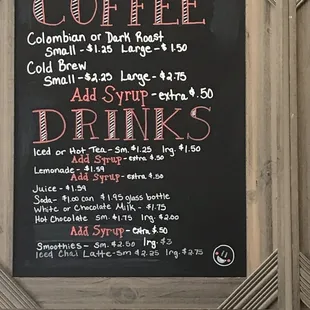 COFFEE
Colombian or Dark Roast
Small - $1.25 Large - $1.50
Cold Brew
Small - $2.25 Large - $2.75
Add Syrup - extra $.50
DRINKS
Iced or Hot Tea - Sm. $1.25 lrg. $1.50
Add Syrup - extra $.50
Lemonade - $1.59
Add Syrup - extra $.50
Juice - $1.59
Soda - $1.00 can $1.95 glass bottle
White or Chocolate Milk - $1.75
Hot Chocolate sm. $1.75 lrg. $2.00
Add Syrup - extra $.50
Smoothies - sm. $2.50 lrg. $3
Iced Chai Latte - sm $2.25 lrg. $2.75